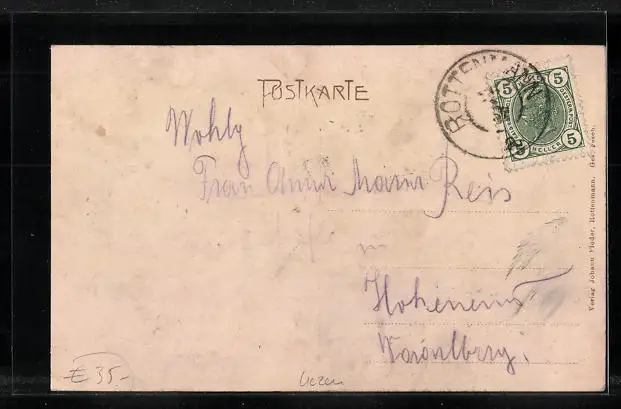 POSTKARTE
ROTTENMANN
5 5
5 HELLER 5
Wohlg
Frau Anna Maria Reis
in
Hohenems
Vorarlberg.
Verlag Johann Pleder, Rottenmann. Ges. Gesch.
€ 35.-